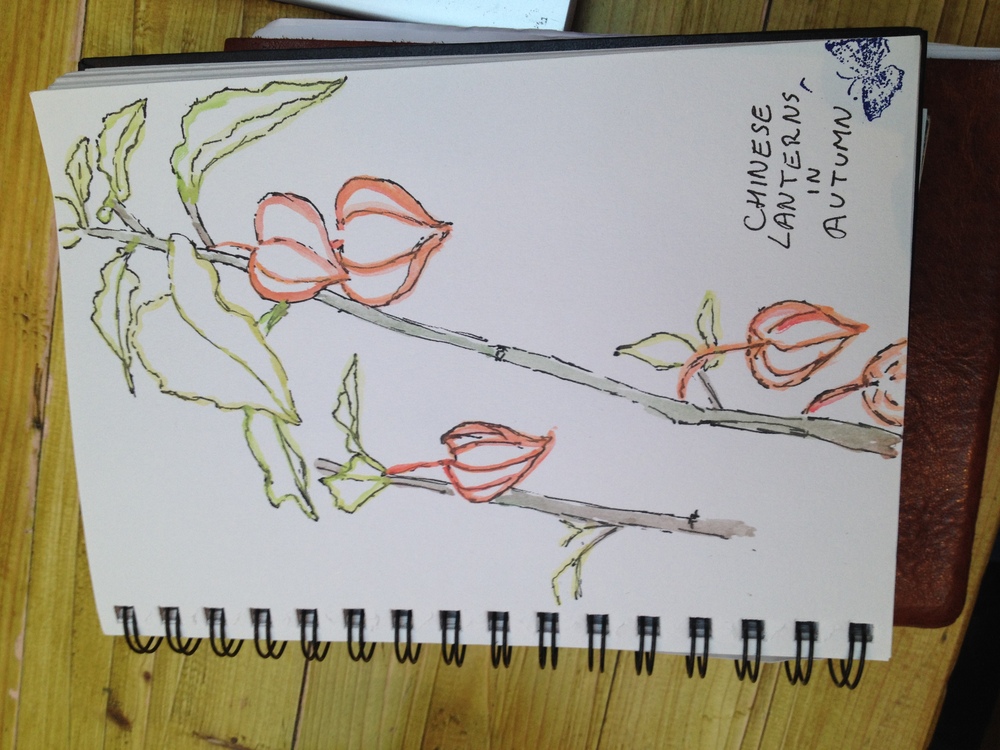 CHINESE
LANTERNS
IN
AUTUMN